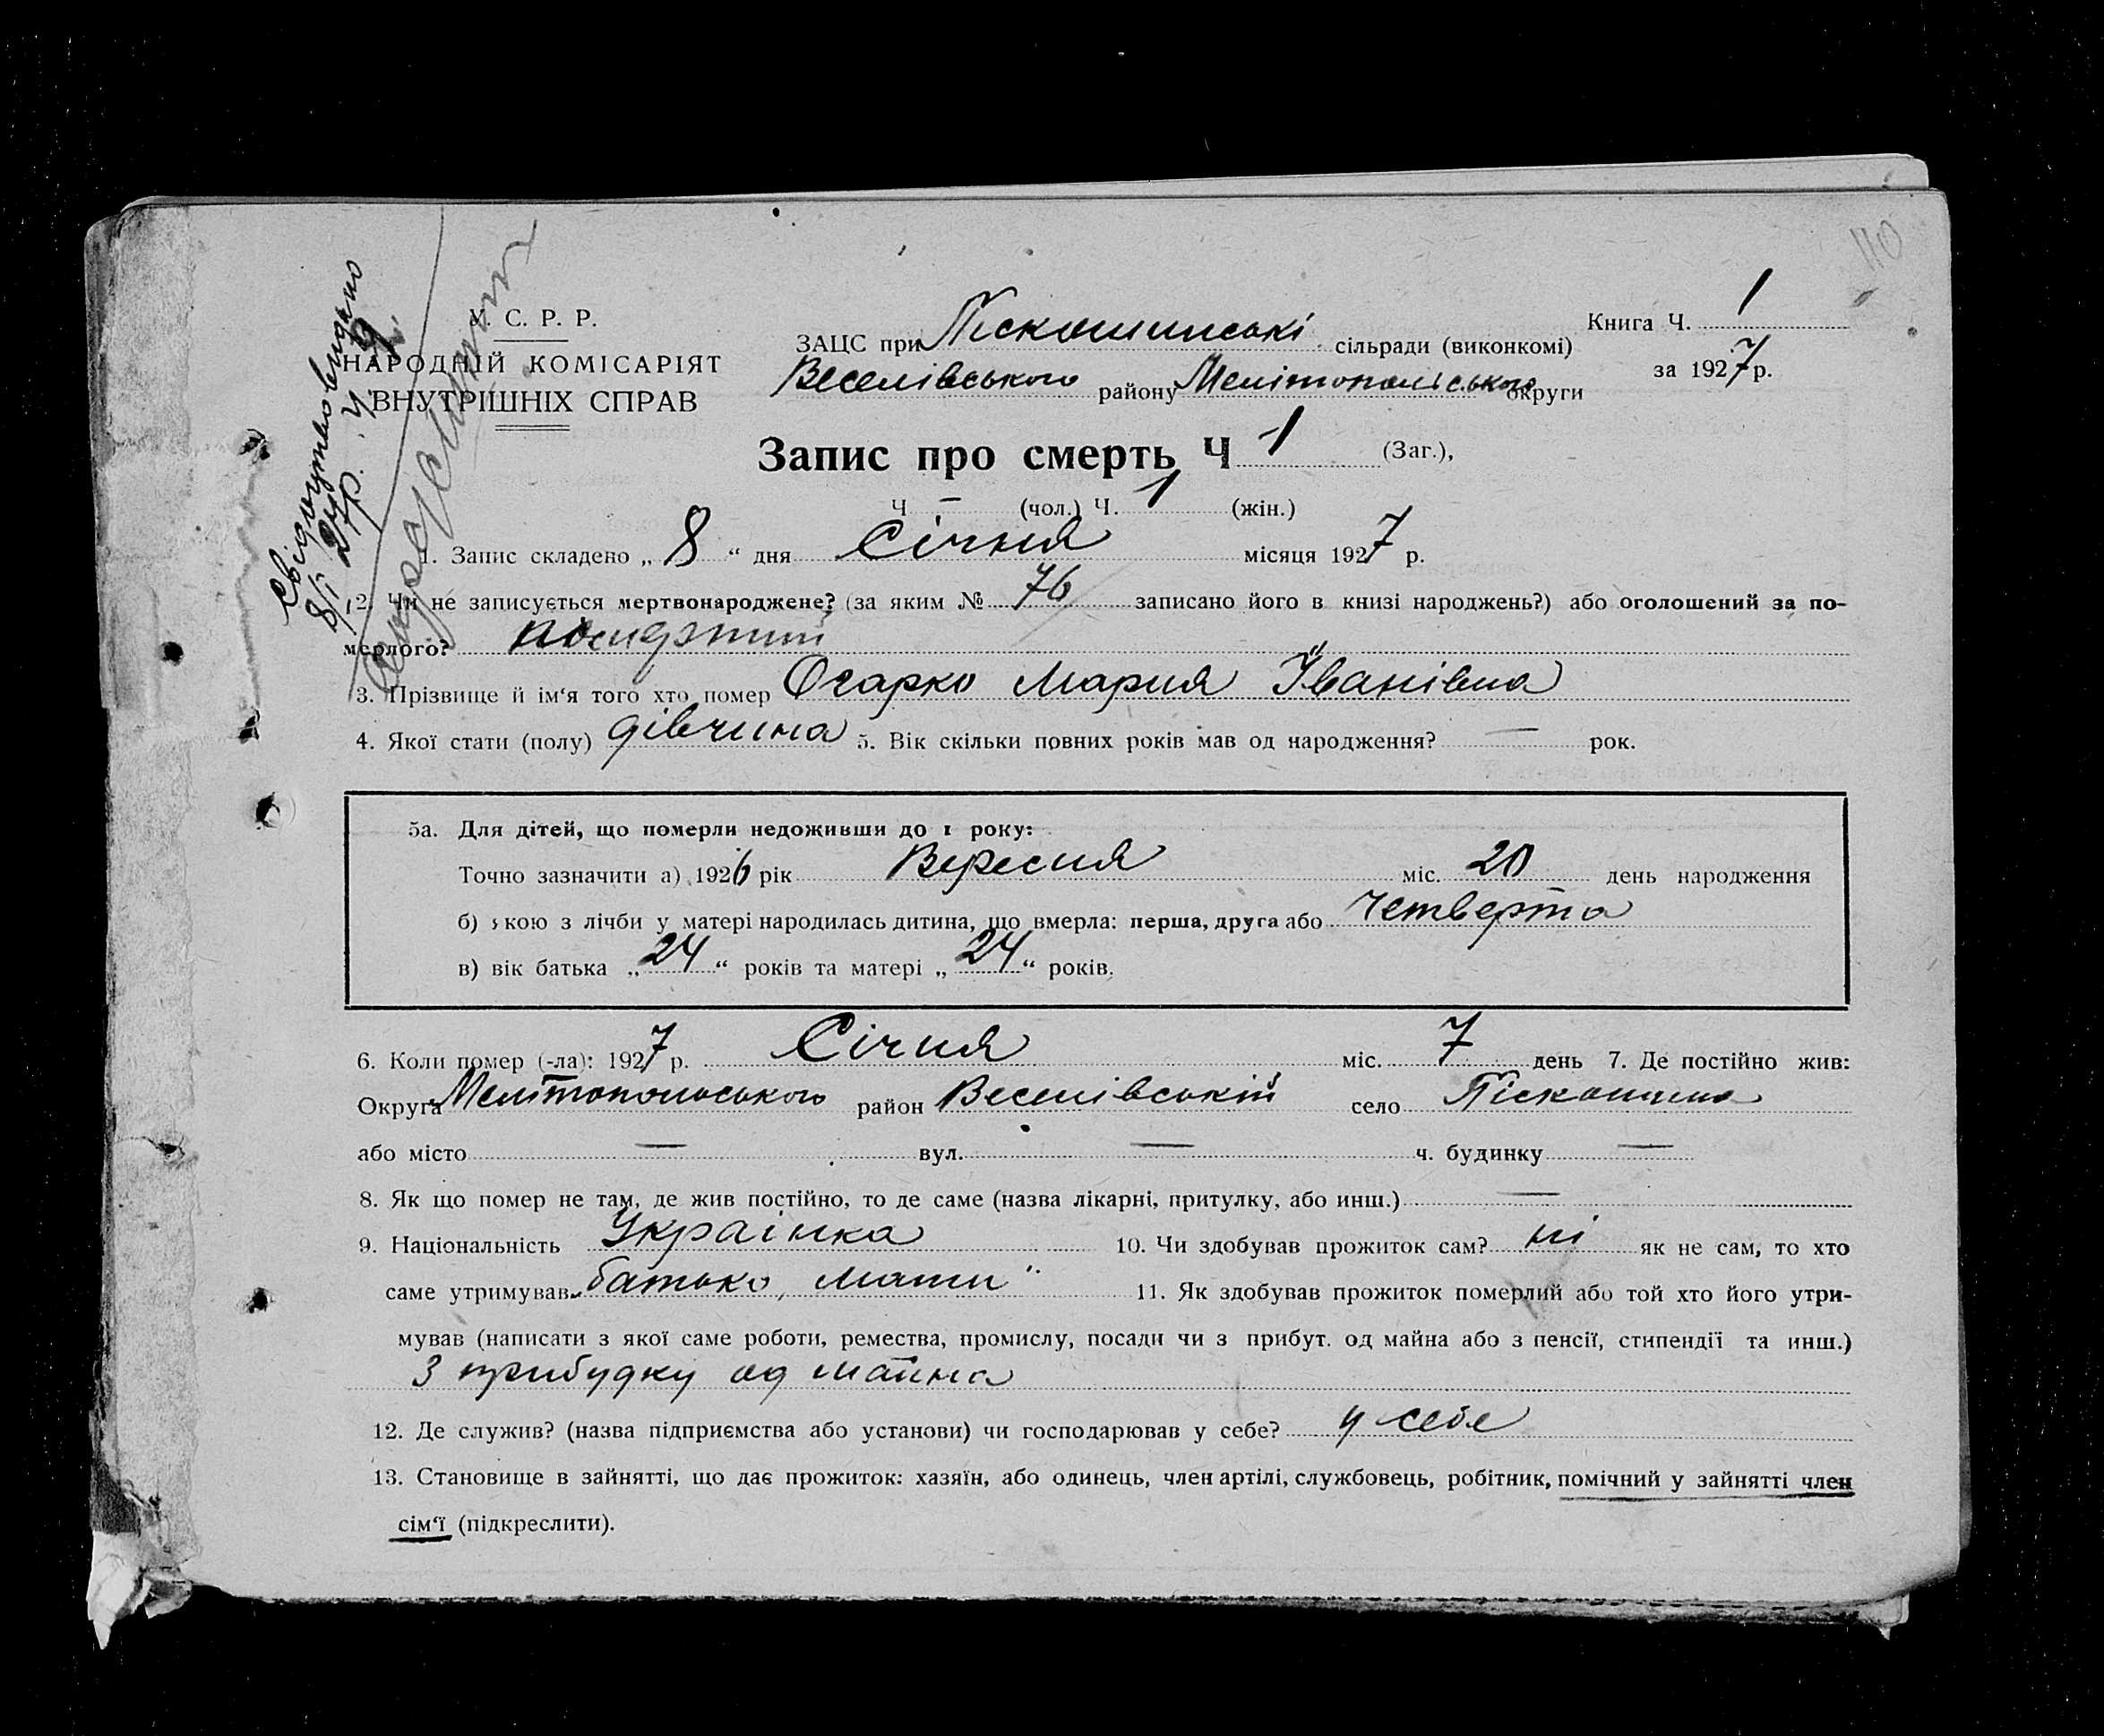 110
Свідоцтво видано
8/I 27 р. Ч 9
У. С. Р. Р.
НАРОДНІЙ КОМІСАРІЯТ
ВНУТРІШНІХ СПРАВ
ЗАЦС при Піскошинські сільради (виконкомі)
Веселівського району Мелітопольського округи
Книга Ч. 1
за 1927 р.
Запис про смерть Ч 1 (Заг.),
Ч – (чол.) Ч. 1 (жін.)
1. Запис складено „ 8 “ дня Січня місяця 1927 р.
2. Чи не записується мертвонароджене? (за яким № 76 записано його в книзі народжень?) або оголошений за по-
мерлого?
3. Прізвище й ім‘я того хто помер Осарко Мария Іванівна
4. Якої стати (полу) дівчина 5. Вік скільки повних років мав од народження? — рок.
5а. Для дітей, що померли недоживши до 1 року:
Точно зазначити а) 1926 рік Вересня міс. 20 день народження
б) якою з лічби у матері народилась дитина, що вмерла: перша, друга або четверта
в) вік батька „ 24 “ років та матері „ 24 “ років.
6. Коли помер (-ла): 1927 р. Січня міс. 7 день 7. Де постійно жив:
Округа Мелітопольського район Веселівський село Піскошина
або місто — вул. — ч. будинку —
8. Як що помер не там, де жив постійно, то де саме (назва лікарні, притулку, або инш.) —
9. Національність Українка 10. Чи здобував прожиток сам? ні як не сам, то хто
саме утримував „батько, мати“ 11. Як здобував прожиток померлий або той хто його утри-
мував (написати з якої саме роботи, ремества, промислу, посади чи з прибут. од майна або з пенсії, стипендії та инш.)
З прибудку од майна
12. Де служив? (назва підприємства або установи) чи господарював у себе? у себе
13. Становище в зайнятті, що дає прожиток: хазяїн, або одинець, член артілі, службовець, робітник, помічний у зайнятті член
сім‘ї (підкреслити).